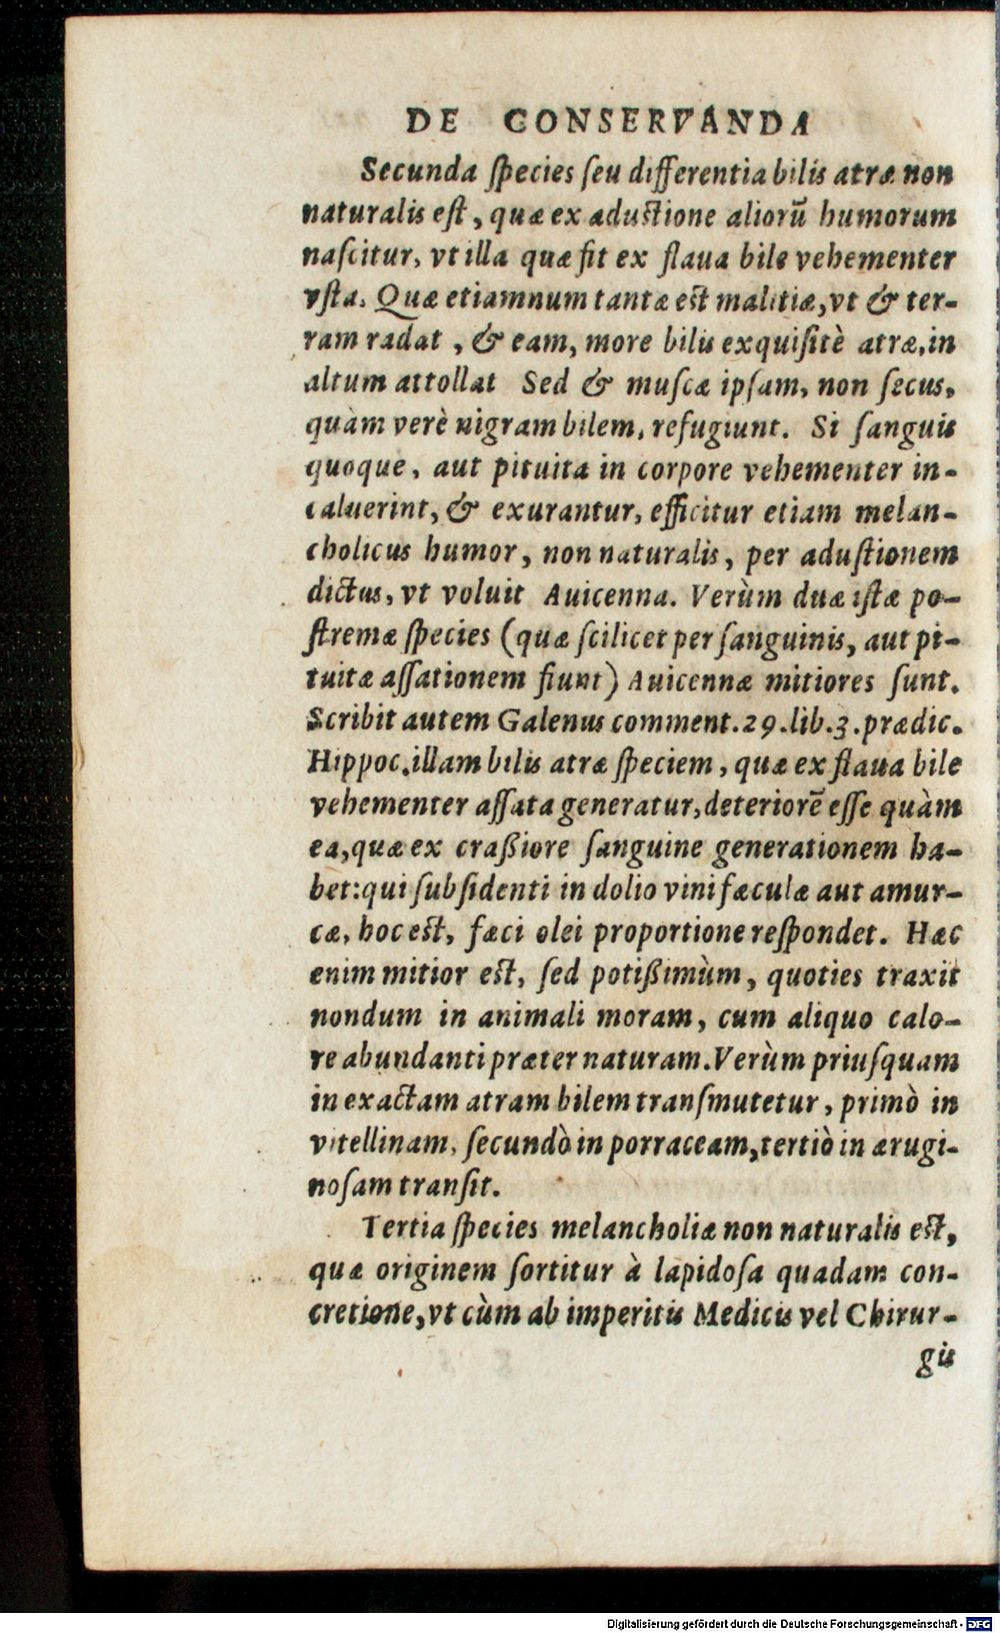 DE CONSERVANDA
Secunda ſpecies ſeu differentia bilis atræ non
naturalis eſt, quæ ex aduſtione aliorū humorum
naſcitur, vt illa quæ fit ex flaua bile vehementer
vſta. Quæ etiamnum tantæ eſt malitiæ, vt & ter-
ram radat, & eam, more bilis exquiſitè atræ, in
altum attollat Sed & muſcæ ipſam, non ſecus,
quàm verè nigram bilem, refugiunt. Si ſanguis
quoque, aut pituita in corpore vehementer in-
caluerint, & exurantur, efficitur etiam melan-
cholicus humor, non naturalis, per aduſtionem
dictus, vt voluit Auicenna. Verùm duæ iſtæ po-
ſtremæ ſpecies (quæ ſcilicet per ſanguinis, aut pi-
tuitæ aſſationem fiunt) Auicennæ mitiores ſunt.
Scribit autem Galenus comment.29.lib.3.prædic.
Hippoc.illam bilis atræ ſpeciem, quæ ex flaua bile
vehementer aſſata generatur,deteriorē eſſe quàm
ea,quæ ex craßiore ſanguine generationem ha-
bet:qui ſubſidenti in dolio vini fæculæ aut amur-
cæ, hoc eſt, fæci olei proportione reſpondet. Hæc
enim mitior eſt, ſed potißimùm, quoties traxit
nondum in animali moram, cum aliquo calo-
re abundanti præter naturam.Verùm priuſquam
in exactam atram bilem tranſmutetur, primò in
vitellinam, ſecundò in porraceam,tertiò in ærugi-
noſam tranſit.
Tertia ſpecies melancholiæ non naturalis eſt,
quæ originem ſortitur à lapidoſa quadam con-
cretione,vt cùm ab imperitis Medicis vel Chirur-
gis
Digitalisierung gefördert durch die Deutsche Forschungsgemeinschaft - DFG